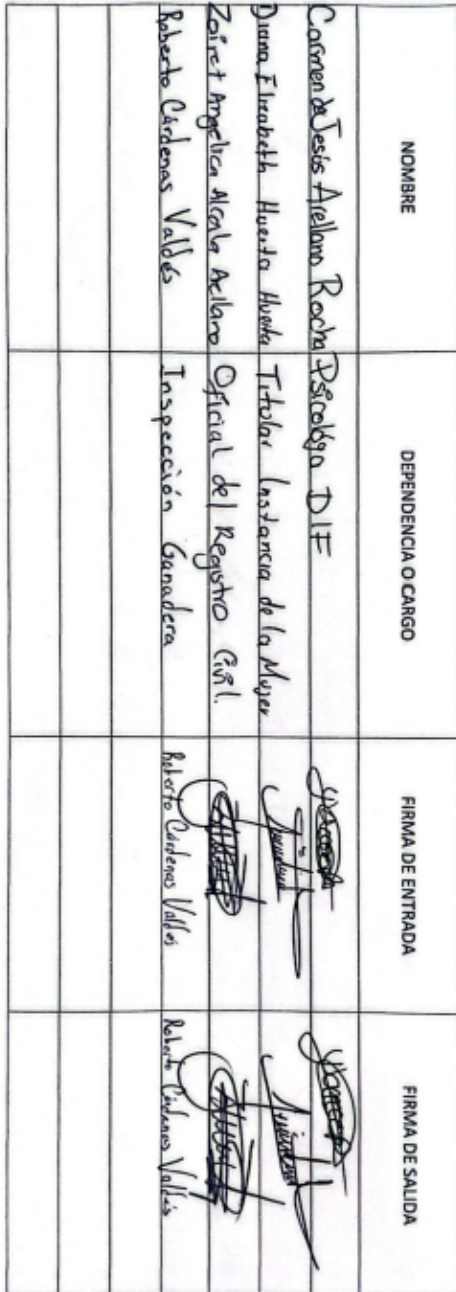 NOMBRE DEPENDENCIA O CARGO FIRMA DE ENTRADA FIRMA DE SALIDA
Carmen de Jesús Arellano Rocha Psicológa DIF
Diana Elizabeth Huerta Huerta Titular Instancia de la Mujer
Zoiret Angelica Alcala Arellano Oficial del Registro Civil.
Roberto Cárdenas Valdés Inspección Ganadera Roberto Cárdenas Valdés Roberto Cárdenas Valdés